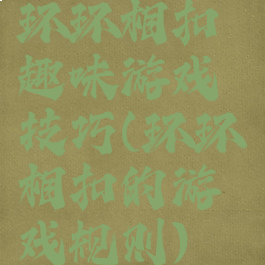 环环相扣
趣味游戏
技巧(环环
相扣的游
戏规则)